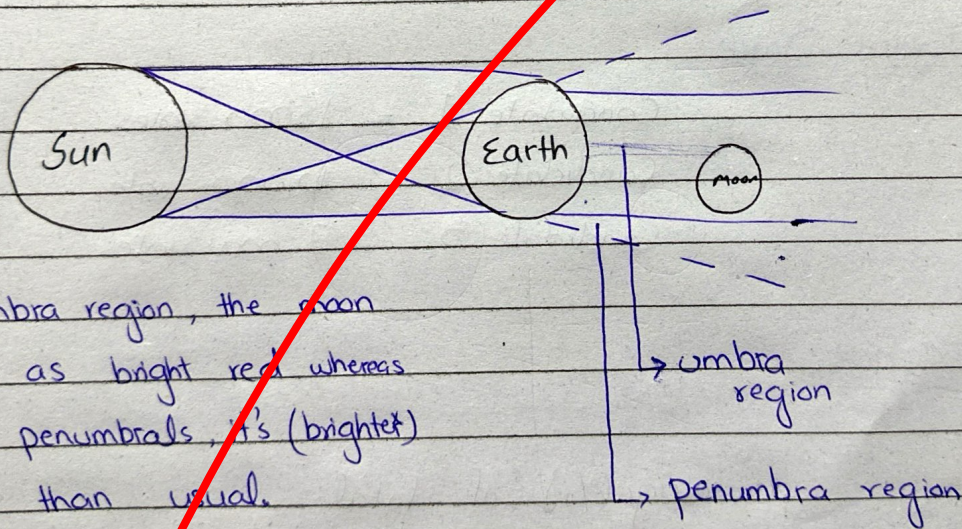 Sun
Earth
Moon
mbra region, the moon
as bright red whereas
penumbrals, it's (brighter)
than usual.
umbra
region
penumbra region